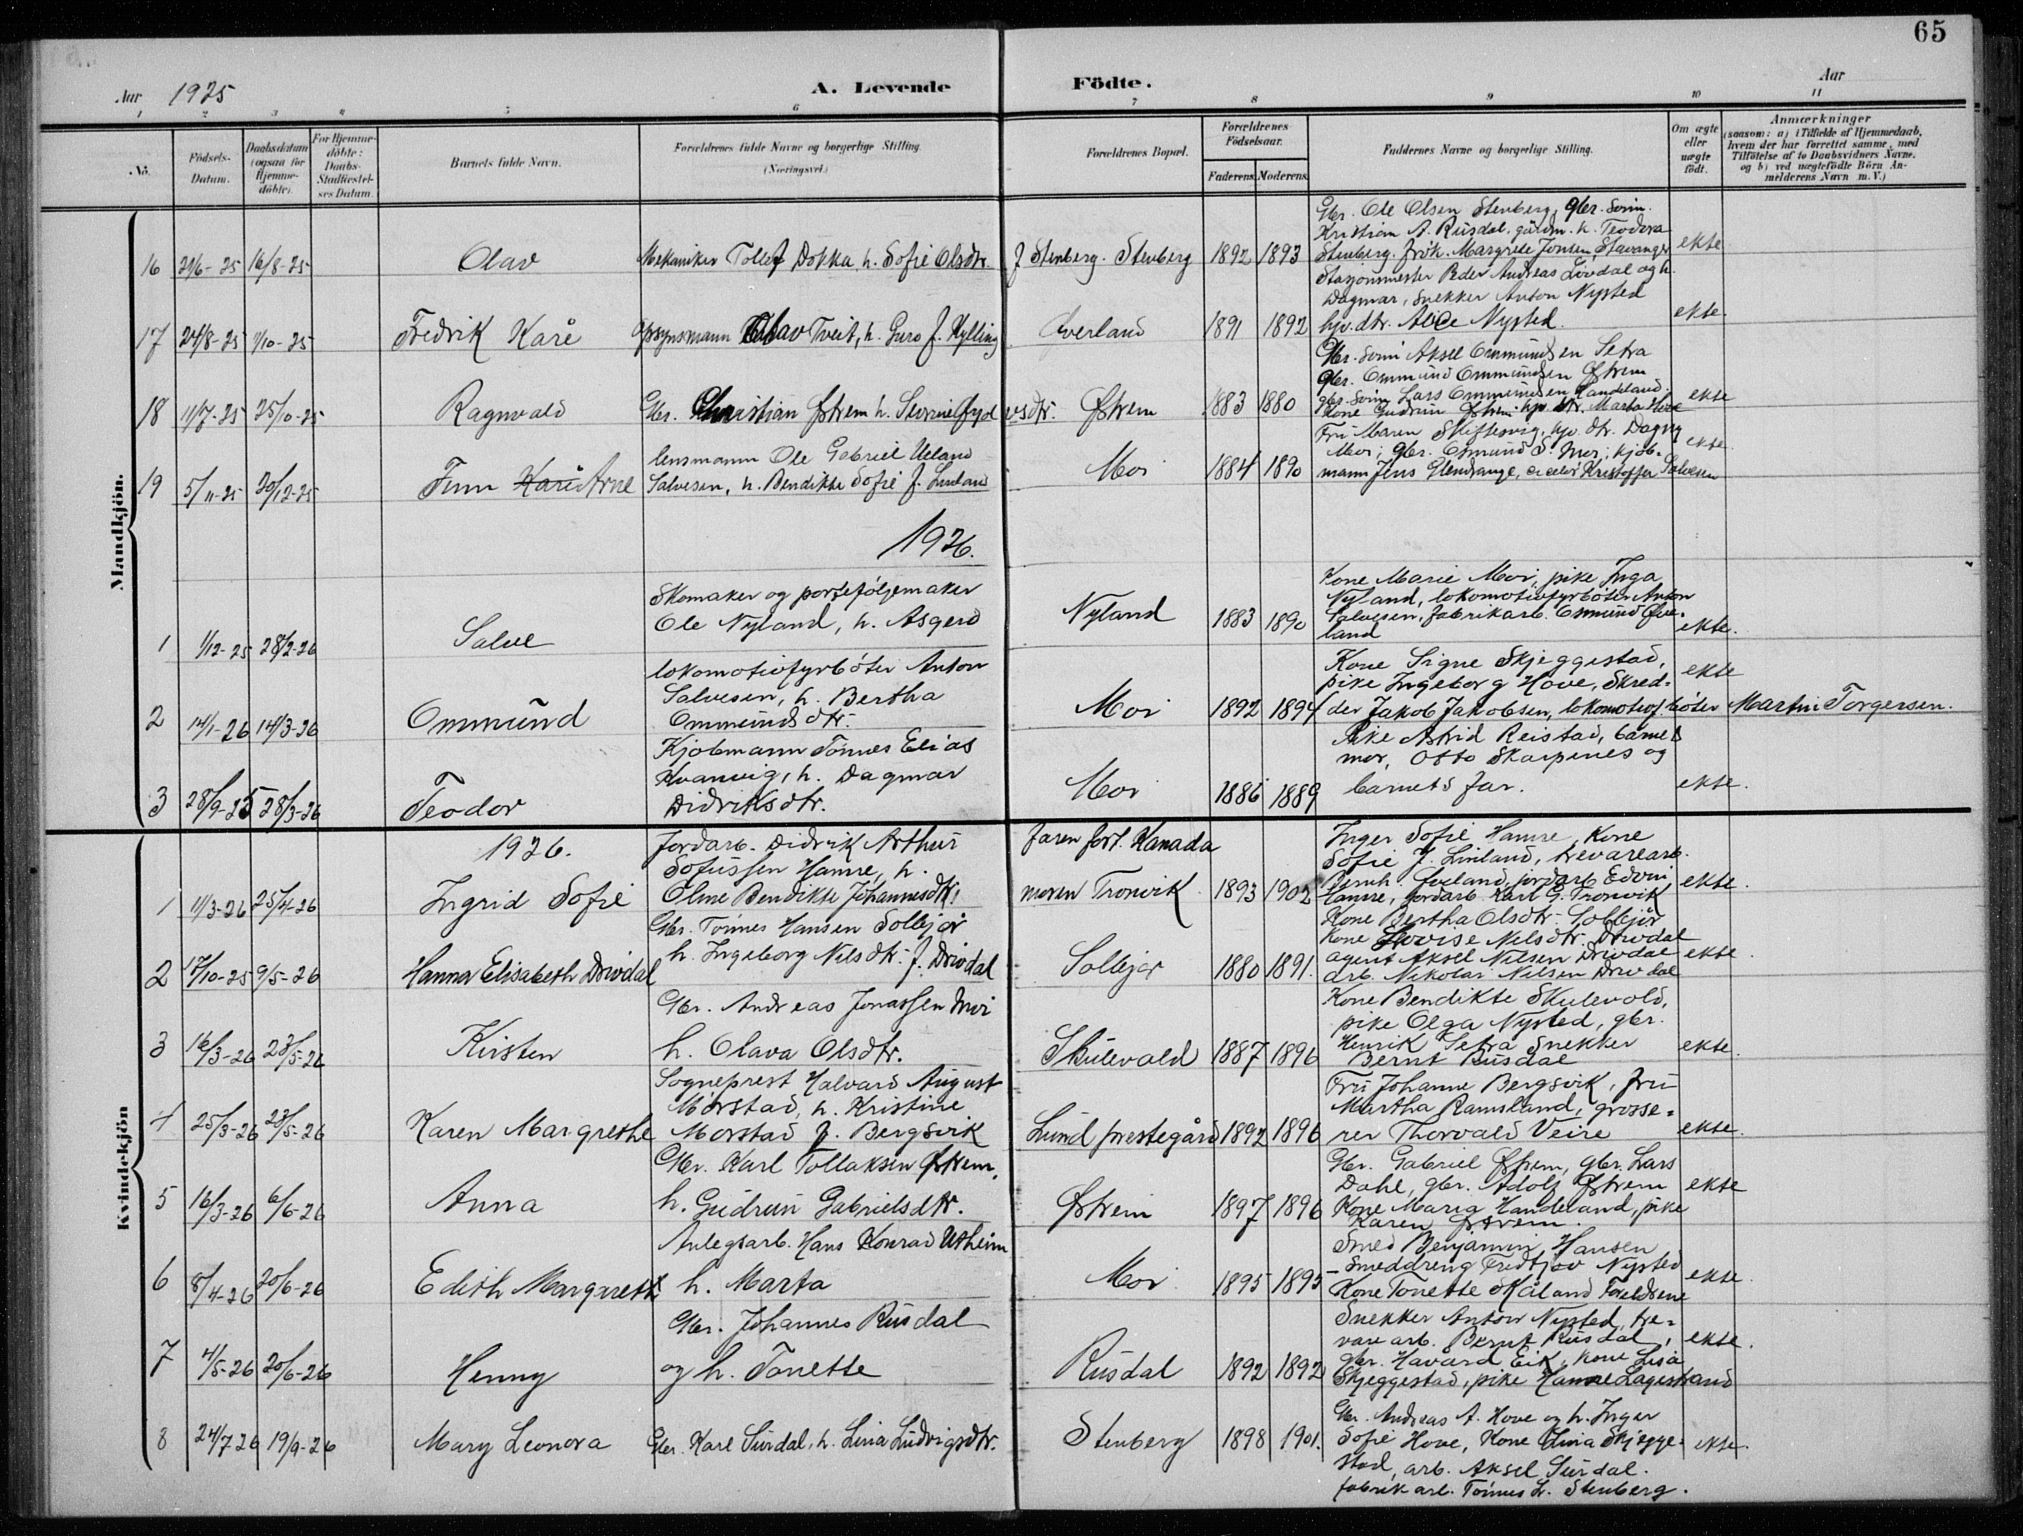 65
Aar 1925 A. Levende Födte. Aar
1 2 3 4 5 6 7 8 9 10 11
No.
Födsels-Datum.
Daabsdatum (ogsaa for Hjemmedöbte).
For Hjemmedöbte: Daabs-Stadfæstelses Datum
Barnets fulde Navn.
Forældrenes fulde Navne og borgerlige Stilling.
(Næringsvei.)
Forældrenes Bopæl.
Forældrenes Födselsaar.
Faderens. Moderens.
Faddernes Navne og borgerlige Stilling.
Om ægte eller uægte födt.
Anmærkninger
(saasom: a) i Tilfælde af Hjemmedaab, hvem der har forrettet samme, med Tilföielse af to Daabsvidners Navne, og b) ved uægtefödte Börn Anmelderens Navn m. V.)
Mandkjön.
16 21/6-25 16/8-25 Olav Mekaniker Tollef Dokka h. Sofie Olsdtr. f Stenberg. Stenberg 1892 1893
Gbr. Ole Olsen Stenberg, gbr. sönn.
Kristian A. Rusdal, guldm. h. Teodora
Stenberg. frök. Margrete Jonsen Stavanger ekte
17 24/8-25 1/10-25 Fredrik Kåre Opsynsmann Olav Tveit, h. Guro f. Kylling Överland 1891 1892
Stasjonsmester Peder Andreas Lövdal og h.
Dagmar, snekker Anton Nysted
hpv. dtr. Alice Nysted. ekte
18 11/7-25 25/10-25 Ragnvald Gbr. Christian Østrem h. Severine Øydvsdtr. Østrem 1883 1880
Gbr. sönn Aksel Ommundsen Setra
gbr. Ommund Ommundsen Østrem
gbr. sönn Lars Ommundsen Handeland.
Kone Gudrun Østrem hpv. dtr. Marta Hove ekte
19 5/11-25 20/12-25 Finn Kåre Arne
lensmann Ole Gabriel Ueland
Salvesen, h. Bendikte Sofie f. Linland
Moi 1884 1890
Fru Maren Skiftesvig, hpv. dtr. Dagny
Moi; gbr. Osmund S. Moi; kjöb-
mann Jens Glendrange, Kristoffer Salvesen
ekte
1926.
1 1/12-25 28/2-26 Salve
Skomaker og porteföljemaker
Ole Nyland, h. Asgerd
Nyland 1883 1890
Kone Marie Moi, pike Inga
Nyland, lokomotivfyrböter Anton
Salvesen, fabrikarb. Osmund Øve-
land ekte.
2 14/1-26 14/3-26 Ommund
lokomotivfyrböter Anton
Salvesen, h. Bertha
Ommundsdtr.
Moi 1892 1894
Kone Signe Skjeggestad,
pike Ingeborg Hove, Skred-
der Jakob Jakobsen, lokomotivf.böter Martin Torgersen.
ekte
3 28/9-25 28/3-26 Teodor
Kjöbmann Tönnes Elias
Kvanvig, h. Dagmar
Didriksdtr.
Moi 1886 1889
Pike Astrid Reistad, barnets
mor, Otto Skarpenes og
barnets far. ekte.
Kvindekjön
1926.
1 11/3-26 25/4-26 Ingrid Sofie
Jordarb. Didrik Arthur
Sofussen Hamre, h.
Oline Bendikte Johannesdtr.
faren fort. Kanada
moren Tronvik 1893 1902
Inger Sofie Hamre, Kone
Sofie J. Linland, trevarearb.
Bernh. Joeland, jordarb. Edvin
Hamre, jordarb. Karl G. Tronvik
ekte.
2 17/10-25 9/5-26 Hanna Elisabeth Drivdal
Gbr. Tönnes Hansen Solbjör
h. Ingeborg Nilsdtr. f. Drivdal
Solbjör 1880 1891.
Kone Bertha Olsdtr. Solbjör
Kone Lovise Nilsdtr. Drivdal
agent Aksel Nilsen Drivdal
arb. Nikolai Nilsen Drivdal
ekte.
3 16/3-26 23/5-26 Kirsten
Gbr. Andreas Jonassen Moi
h. Olava Olsdtr.
Skulevold 1887 1896
Kone Bendikte Skulevold,
pike Olga Nysted, gbr.
Henrik Setra Snekker
Bernt Rusdal
ekte.
4 25/3-26 23/5-26 Karen Margrethe
Sogneprest Halvard August
Mørstad, h. Kristine
Morstad f. Bergsvik
Lund prestegård 1892 1896
Fru Johanne Bergsvik, Fru
Martha Ramsland, grosse-
rer Thorvald Veire
ekte.
5 16/3-26 6/6-26 Anna
Gbr. Karl Tollaksen Østrem,
h. Gudrun Gabrielsdtr.
Østrem 1897 1896
Gbr. Gabriel Østrem, gbr. Lars
Dahl, gbr. Adolf Østrem
Kone Maria Handeland, pike
Karen Østrem.
ekte
6 8/4-26 20/6-26 Edith Margareth
Anlegsarb. Hans Konrad Utheim
h. Marta
Moi 1895 1895
Smed Benjamin Hansen
- Smeddreng Fridtjov Nysted
Kone Tonette Skåland Foreldrene
ekte.
7 4/5-26 20/6-26 Henny
Gbr. Johannes Rusdal
og h. Tonette
Rusdal 1892 1892
Snekker Anton Nysted, tre-
vare arb. Bernt Rusdal,
gbr. Håvard Eik, kone Lisa
Skjeggestad, pike Hanne Lagestrand
ekte.
8 24/7 26 19/9-26 Mary Leonora Gbr. Karl Surdal, h. Lina Ludvigsdtr. Stenberg 1898 1901.
Gbr. Andreas A. Hove og h. Inger
Sofie Hove, Kone Lina Skjegge-
stad, arb. Aksel Surdal.
fabrik arb. Tönnes L. Stenberg.
ekte.